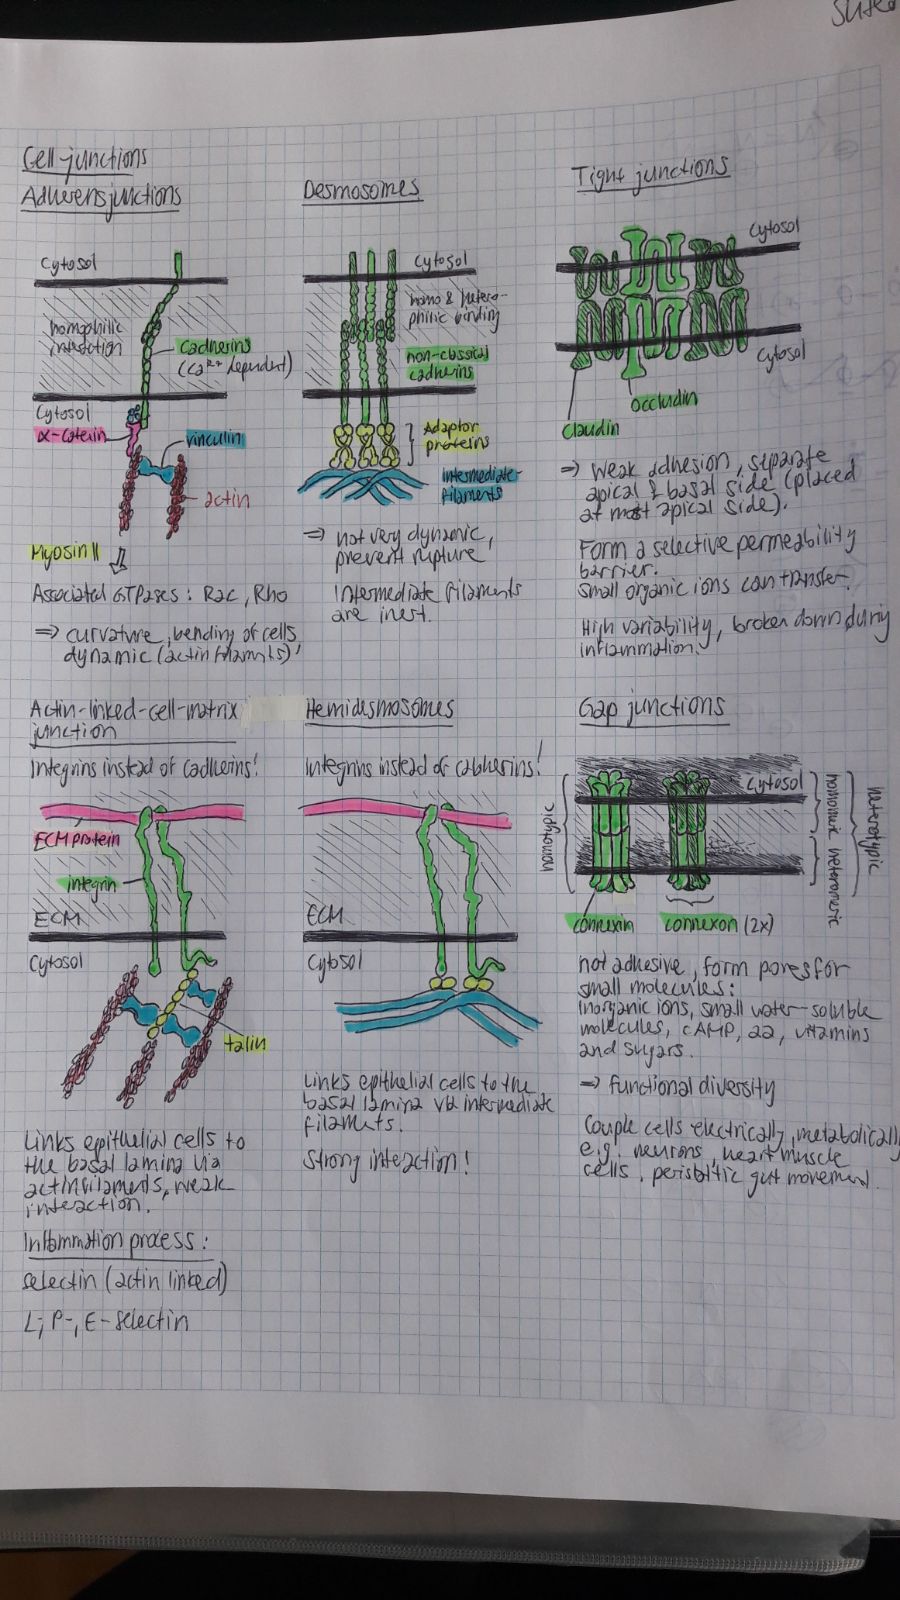 Cell junctions
Adherensjunctions
Cytosol
homophilic
interaction
cadherins
(Ca2+ dependent)
Cytosol
α-catenin
vinculin
actin
Myosin II
Associated GTPases: Rac, Rho
⇒ curvature, bending of cells,
dynamic (actin filaments)!
Desmosomes
Cytosol
homo & hetero-
philic binding
non-classical
cadherins
Adaptor
proteins
Intermediate-
filaments
⇒ not very dynamic,
prevent rupture
Intermediate filaments
are inert.
Tight junctions
Cytosol
Cytosol
Occludin
Claudin
⇒ Weak adhesion, separate
apical & basal side (placed
at most apical side).
Form a selective permeability
barrier.
Small organic ions can transfer.
High variability, broken down during
inflammation.
Actin-linked-cell-matrix
junction
Integrins instead of cadherins!
ECM protein
integrin
ECM
Cytosol
talin
Links epithelial cells to
the basal lamina via
actinfilaments, weak
interaction.
Inflammation process:
selectin (actin linked)
L-, P-, E-selectin
Hemidesmosomes
Integrins instead of cadherins!
ECM
Cytosol
Links epithelial cells to the
basal lamina via intermediate
filaments.
Strong interaction!
Gap junctions
homotypic
Cytosol
homomeric heteromeric
heterotypic
connexin
connexon (2x)
not adhesive, form pores for
small molecules:
inorganic ions, small water-soluble
molecules, cAMP, aa, vitamins
and sugars.
⇒ functional diversity
Couple cells electrically, metabolically
e.g. neurons, heart muscle
cells, peristaltic gut movement.